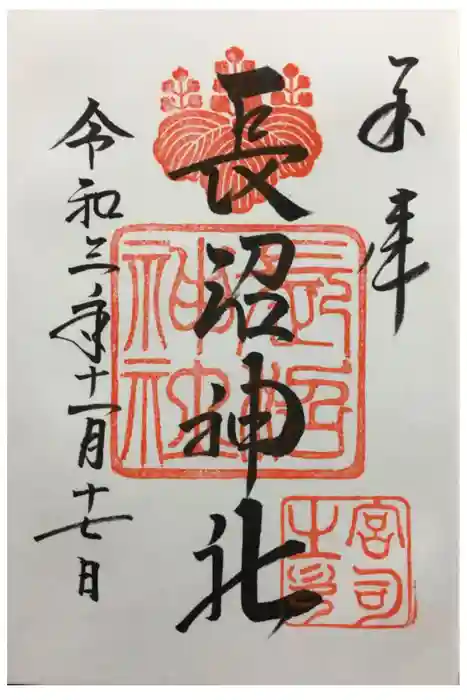 奉拝
長沼神社
令和三年十一月十七日
長沼神社
宮司之印